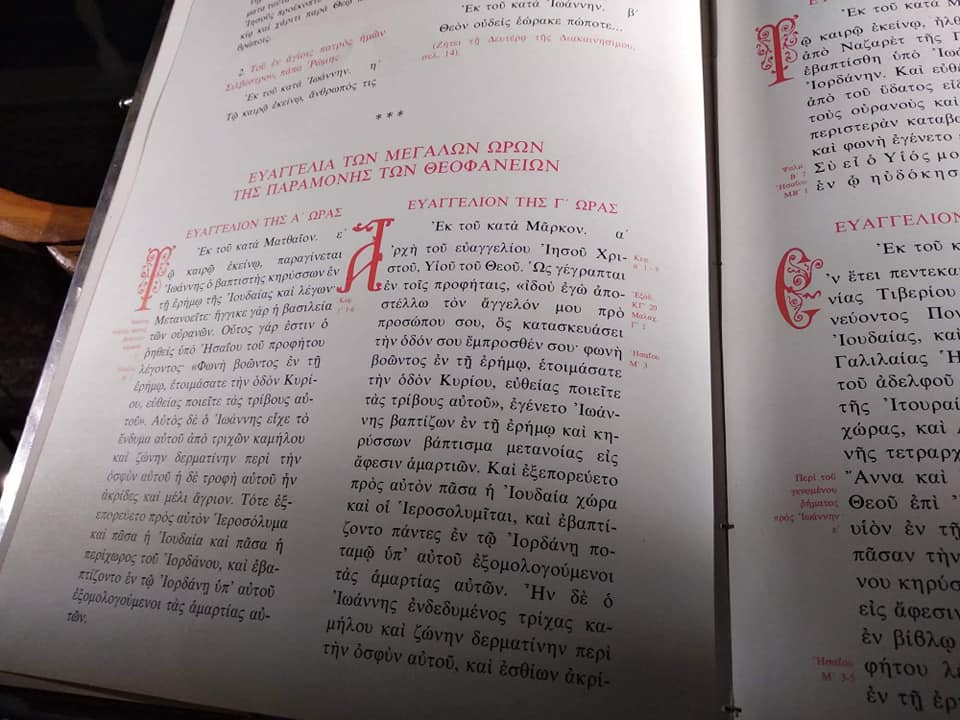 ματα ταῦτα
Ἰησοῦς προέκοπτε
κίᾳ καὶ χάριτι παρὰ Θεῷ
θρώποις.
2. Τοῦ ἐν ἁγίοις πατρὸς ἡμῶν
Σιλβέστρου, πάπα Ῥώμης
Ἐκ τοῦ κατὰ Ἰωάννην. η΄
Τῷ καιρῷ ἐκείνῳ, ἄνθρωπός τις
Ἐκ τοῦ κατὰ Ἰωάννην. β΄
Θεὸν οὐδεὶς ἑώρακε πώποτε...
(Ζήτει τῇ Δευτέρᾳ τῆς Διακαινησίμου,
σελ. 14).
***
ΕΥΑΓΓΕΛΙΑ ΤΩΝ ΜΕΓΑΛΩΝ ΩΡΩΝ
ΤΗΣ ΠΑΡΑΜΟΝΗΣ ΤΩΝ ΘΕΟΦΑΝΕΙΩΝ
ΕΥΑΓΓΕΛΙΟΝ ΤΗΣ Α΄ ΩΡΑΣ
Ἐκ τοῦ κατὰ Ματθαῖον. ε΄
Τῷ καιρῷ ἐκείνῳ, παραγίνεται
Ἰωάννης ὁ βαπτιστὴς κηρύσσων ἐν
τῇ ἐρήμῳ τῆς Ἰουδαίας καὶ λέγων·
Μετανοεῖτε· ἤγγικε γὰρ ἡ βασιλεία
τῶν οὐρανῶν. Οὗτος γάρ ἐστιν ὁ
ῥηθεὶς ὑπὸ Ἠσαΐου τοῦ προφήτου
λέγοντος· «Φωνὴ βοῶντος ἐν τῇ
ἐρήμῳ, ἑτοιμάσατε τὴν ὁδὸν Κυρί-
ου, εὐθείας ποιεῖτε τὰς τρίβους αὐ-
τοῦ». Αὐτὸς δὲ ὁ Ἰωάννης εἶχε τὸ
ἔνδυμα αὐτοῦ ἀπὸ τριχῶν καμήλου
καὶ ζώνην δερματίνην περὶ τὴν
ὀσφὺν αὐτοῦ ἡ δὲ τροφὴ αὐτοῦ ἦν
ἀκρίδες καὶ μέλι ἄγριον. Τότε ἐξ-
επορεύετο πρὸς αὐτὸν Ἱεροσόλυμα
καὶ πᾶσα ἡ Ἰουδαία καὶ πᾶσα ἡ
περίχωρος τοῦ Ἰορδάνου, καὶ ἐβα-
πτίζοντο ἐν τῷ Ἰορδάνῃ ὑπ' αὐτοῦ
ἐξομολογούμενοι τὰς ἁμαρτίας αὐ-
τῶν.
ΕΥΑΓΓΕΛΙΟΝ ΤΗΣ Γ΄ ΩΡΑΣ
Ἐκ τοῦ κατὰ Μᾶρκον. α΄
Ἀρχὴ τοῦ εὐαγγελίου Ἰησοῦ Χρι-
στοῦ, Υἱοῦ τοῦ Θεοῦ. Ὡς γέγραπται
ἐν τοῖς προφήταις, «ἰδοὺ ἐγὼ ἀπο-
στέλλω τὸν ἄγγελόν μου πρὸ
προσώπου σου, ὃς κατασκευάσει
τὴν ὁδόν σου ἔμπροσθέν σου· φωνὴ
βοῶντος ἐν τῇ ἐρήμῳ, ἑτοιμάσατε
τὴν ὁδὸν Κυρίου, εὐθείας ποιεῖτε
τὰς τρίβους αὐτοῦ», ἐγένετο Ἰωάν-
νης βαπτίζων ἐν τῇ ἐρήμῳ καὶ κη-
ρύσσων βάπτισμα μετανοίας εἰς
ἄφεσιν ἁμαρτιῶν. Καὶ ἐξεπορεύετο
πρὸς αὐτὸν πᾶσα ἡ Ἰουδαία χώρα
καὶ οἱ Ἱεροσολυμῖται, καὶ ἐβαπτί-
ζοντο πάντες ἐν τῷ Ἰορδάνῃ πο-
ταμῷ ὑπ' αὐτοῦ ἐξομολογούμενοι
τὰς ἁμαρτίας αὐτῶν. Ἦν δὲ ὁ
Ἰωάννης ἐνδεδυμένος τρίχας κα-
μήλου καὶ ζώνην δερματίνην περὶ
τὴν ὀσφὺν αὐτοῦ, καὶ ἐσθίων ἀκρί-
Ἐξόδ.
ΚΓ΄ 20
Μαλαχ.
Γ΄ 1
Ἠσαΐου
Μ΄ 3
Ἐκ τοῦ κατὰ Μ
Τῷ καιρῷ ἐκείνῳ, ἦλθ
ἀπὸ Ναζαρὲτ τῆς Γ
ἐβαπτίσθη ὑπὸ Ἰω
Ἰορδάνην. Καὶ εὐθέ
ἀπὸ τοῦ ὕδατος εἶδ
τοὺς οὐρανοὺς καὶ
περιστερὰν καταβα
καὶ φωνὴ ἐγένετο
Σὺ εἶ ὁ Υἱός μο
ἐν ᾧ ηὐδόκησ
Ψαλμ.
Β΄ 7
Ἠσαΐου
ΜΒ΄ 1
ΕΥΑΓΓΕΛΙΟΝ
Ἐκ τοῦ κ
Ἐν ἔτει πεντεκα
νίας Τιβερίου
νεύοντος Πον
Ἰουδαίας, κα
Γαλιλαίας Ἡ
τοῦ ἀδελφοῦ
τῆς Ἰτουραί
χώρας, καὶ Λ
νῆς τετραρχ
Ἄννα καὶ
Θεοῦ ἐπὶ
υἱὸν ἐν τῇ
πᾶσαν τὴν
νου κηρύσ
εἰς ἄφεσιν
ἐν βίβλῳ
φήτου λέ
ἐν τῇ ἐρή
Περὶ τοῦ
γενομένου
ῥήματος
πρὸς Ἰωάννην
Ἠσαΐου
Μ΄ 3-5